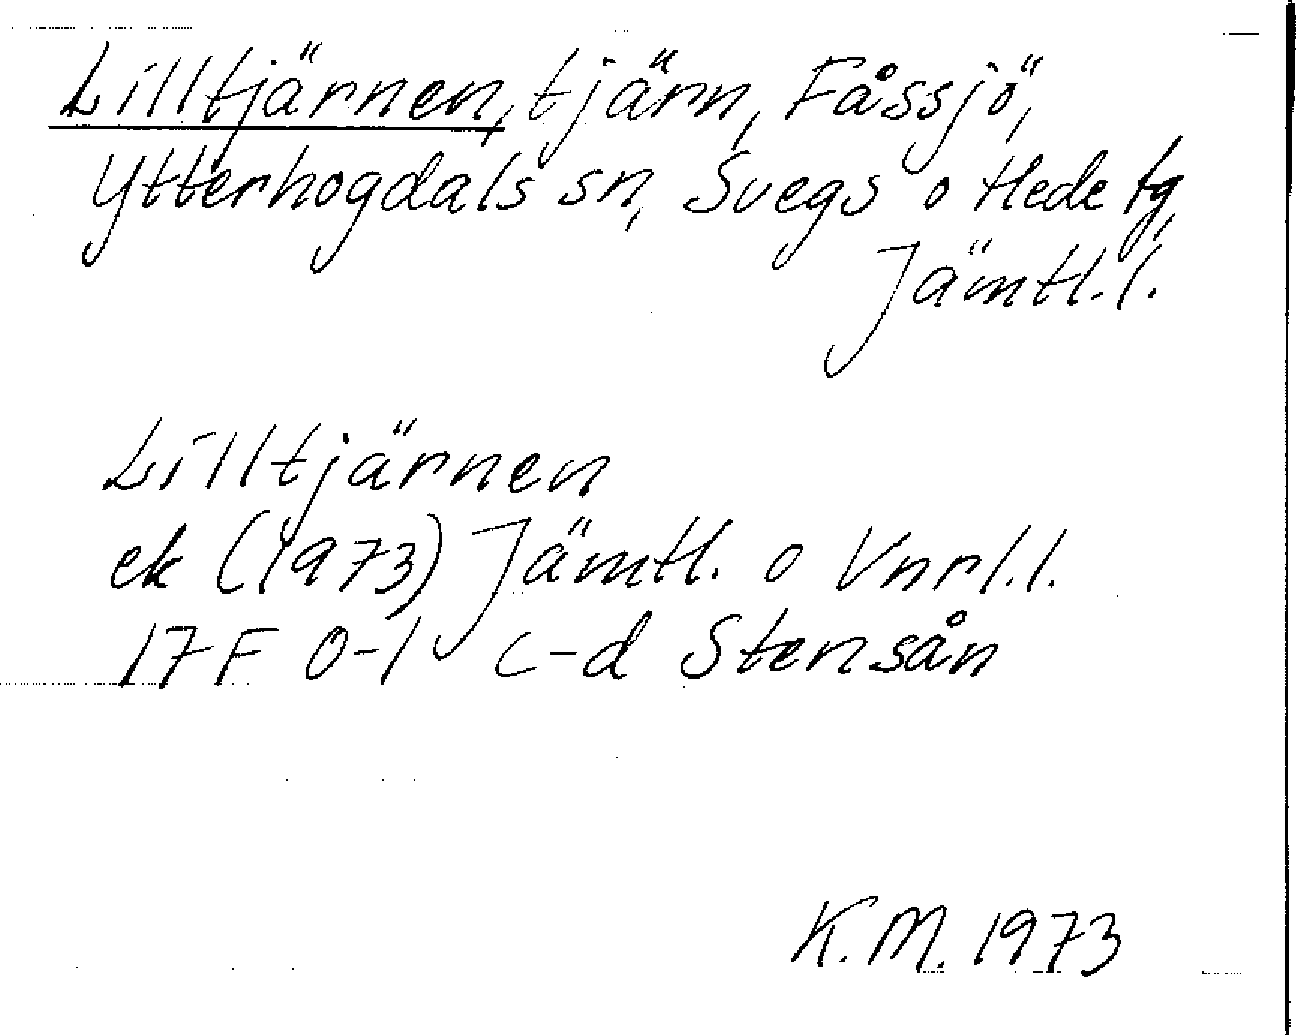 Lilltjärnen, tjärn, Fåssjö,
Ytterhogdals sn, Svegs o Hede tg,
Jämtl. l.
Lilltjärnen
ek (1973) Jämtl. o Vnrl. l.
17 F 0-1 c-d Stensån
K.M. 1973